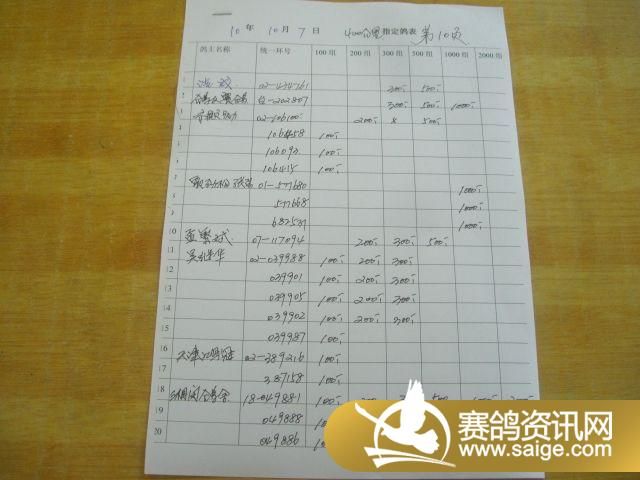 10年 10月 7日 400公里指定鸽表 第10页
鸽主名称 统一环号 100组 200组 300组 500组 1000组 2000组
02-434761 300 500
-202807 300 500 1000
02-106100 200 x 500
106458 100
106093 100
106415 100
01-577680 1000
577668 1000
682537 1000
10 07-117094 200 300 500
11 吴继华 02-039988 100 200 300
12 039901 100 200 300
13 039905 100 200 300
14 039902 100 200 300
15 039987 100
16 02-389216 100
17 387158 100
18 18-049881 100
19 049888
20 049886
赛鸽资讯网
www.saige.com